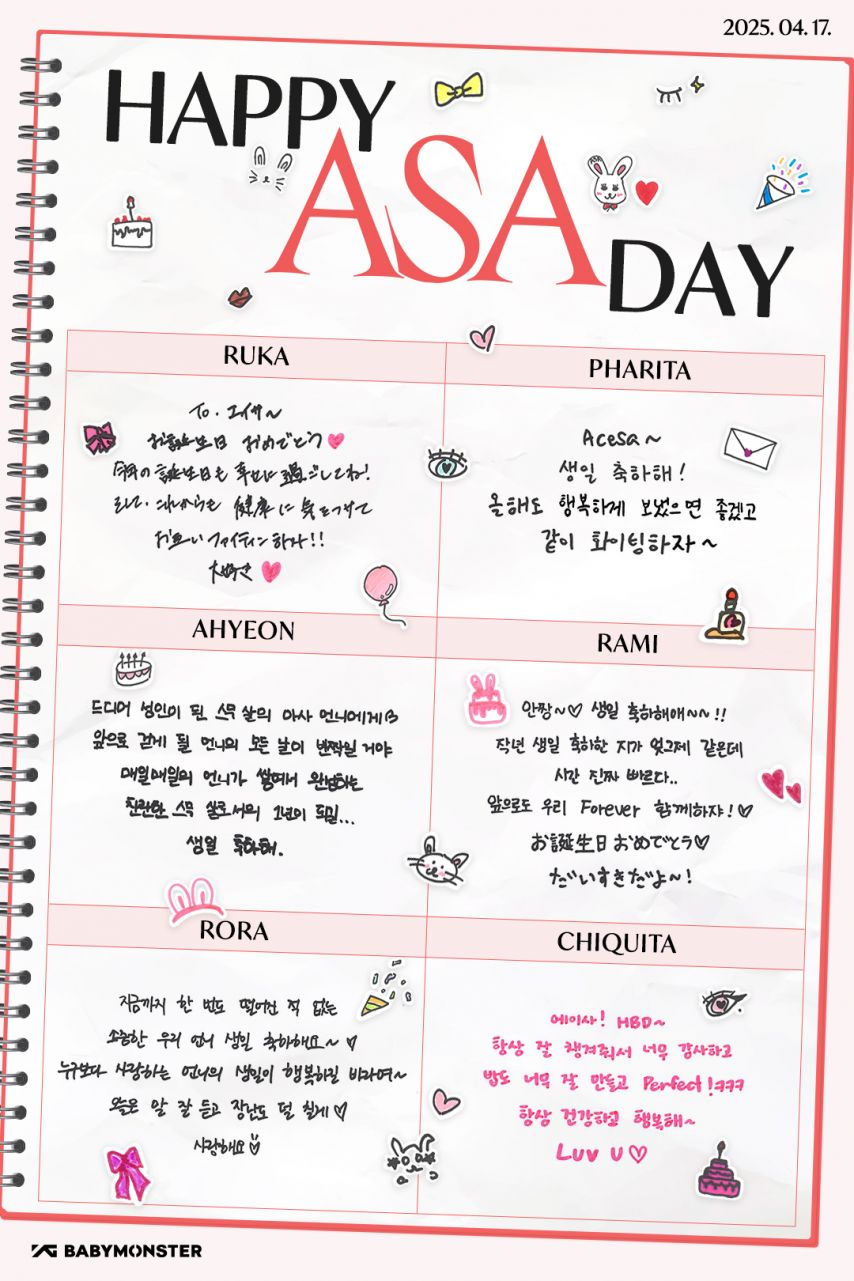 2025. 04. 17.
HAPPY
ASA
DAY
RUKA
To. エイサ~
お誕生日 おめでとう
今年の誕生日も 幸せに過ごしてね!
そして、これからも 健康に 気をつけて
お互い ファイティン하자!!
大好き
PHARITA
Acesa~
생일 축하해!
올해도 행복하게 보냈으면 좋겠고
같이 화이팅하자~
AHYEON
드디어 성인이 된 스무 살의 아사 언니에게
앞으로 걷게 될 언니의 모든 날이 반짝일 거야
매일매일의 언니가 쌓여서 완성하는
찬란한 스무 살로서의 1년이 되길...
생일 축하해.
RAMI
안짱~♡ 생일 축하해애~~!!
작년 생일 축하한 지가 엊그제 같은데
시간 진짜 빠르다..
앞으로도 우리 Forever 함께하쟈!♡
お誕生日おめでとう♡
だいすきだよ~!
RORA
지금까지 한 번도 떨어진 적 없는
소중한 우리 언니 생일 축하해요~ ♡
누구보다 사랑하는 언니의 생일이 행복하길 바라며~
오늘은 말 잘 듣고 장난도 덜 칠게♡
사랑해요
CHIQUITA
에이사! HBD~
항상 잘 챙겨줘서 너무 감사하고
밥도 너무 잘 만들고 Perfect!ㅋㅋㅋ
항상 건강하고 행복해~
Luv U♡
YG BABYMONSTER